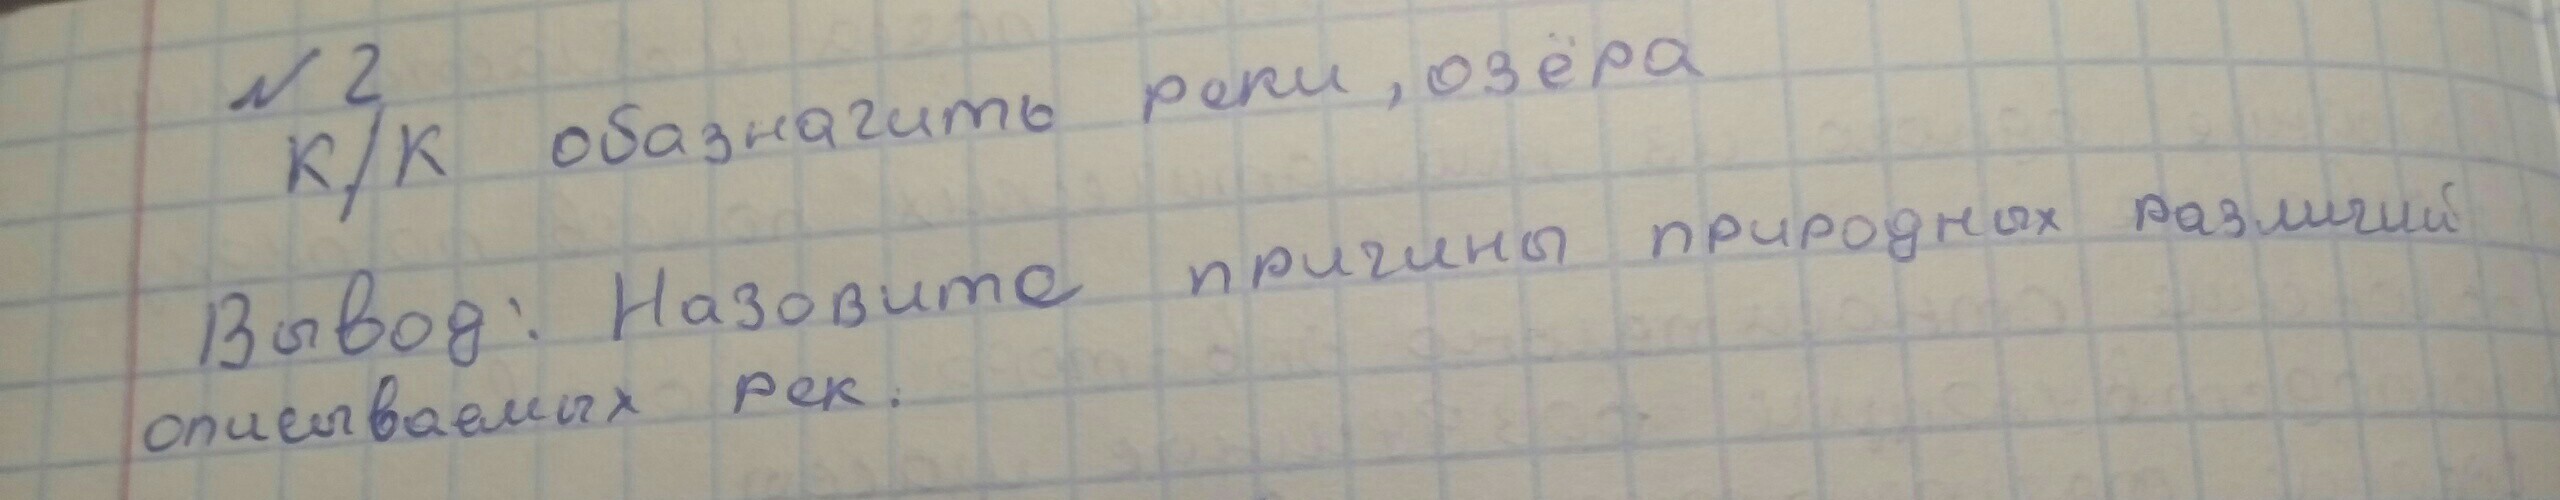 № 2
К/К обазначить реки, озёра
Вывод: Назовите причины природных различий
описываемых рек.